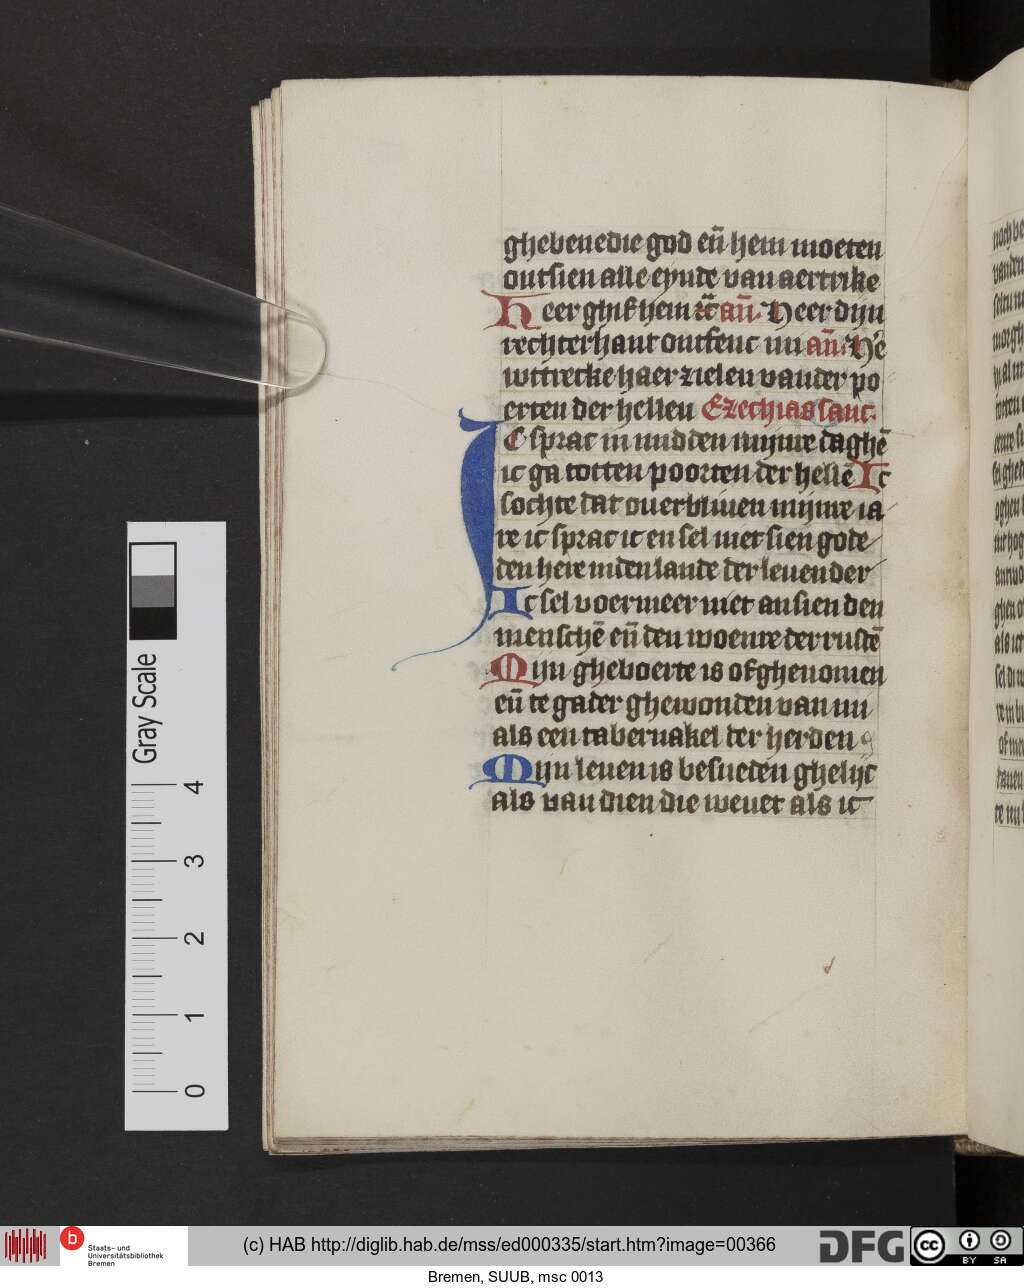 ghebenedie god eñ hem moeten
ontsien alle eynde van aertrike
Heer ghif hem etc̃ añ. Heer dijn
rechterhant ontfenc mi añ. He
wttrecke haer zielen vander po
erten der hellen Ezechias sanc.
IC sprac in midden mijnre daghē
ic ga totten poorten der hellē Ic
sochte dat ouerbliuen mijnre ia
re ic sprac ic en sel niet sien gode
den here inden lande der leuender
Ic sel voermeer niet ansien den
menschē eñ den woenre der rustē
Mijn gheboerte is ofghenomen
eñ te gader ghewonden van mi
als een tabernakel der herden
Mijn leuen is besneden ghelijc
als van dien die weuet als ic
Gray Scale
4
3
2
1
0
b
Staats- und
Universitätsbibliothek
Bremen
(c) HAB http://diglib.hab.de/mss/ed000335/start.htm?image=00366
DFG
cc
BY SA
Bremen, SUUB, msc 0013